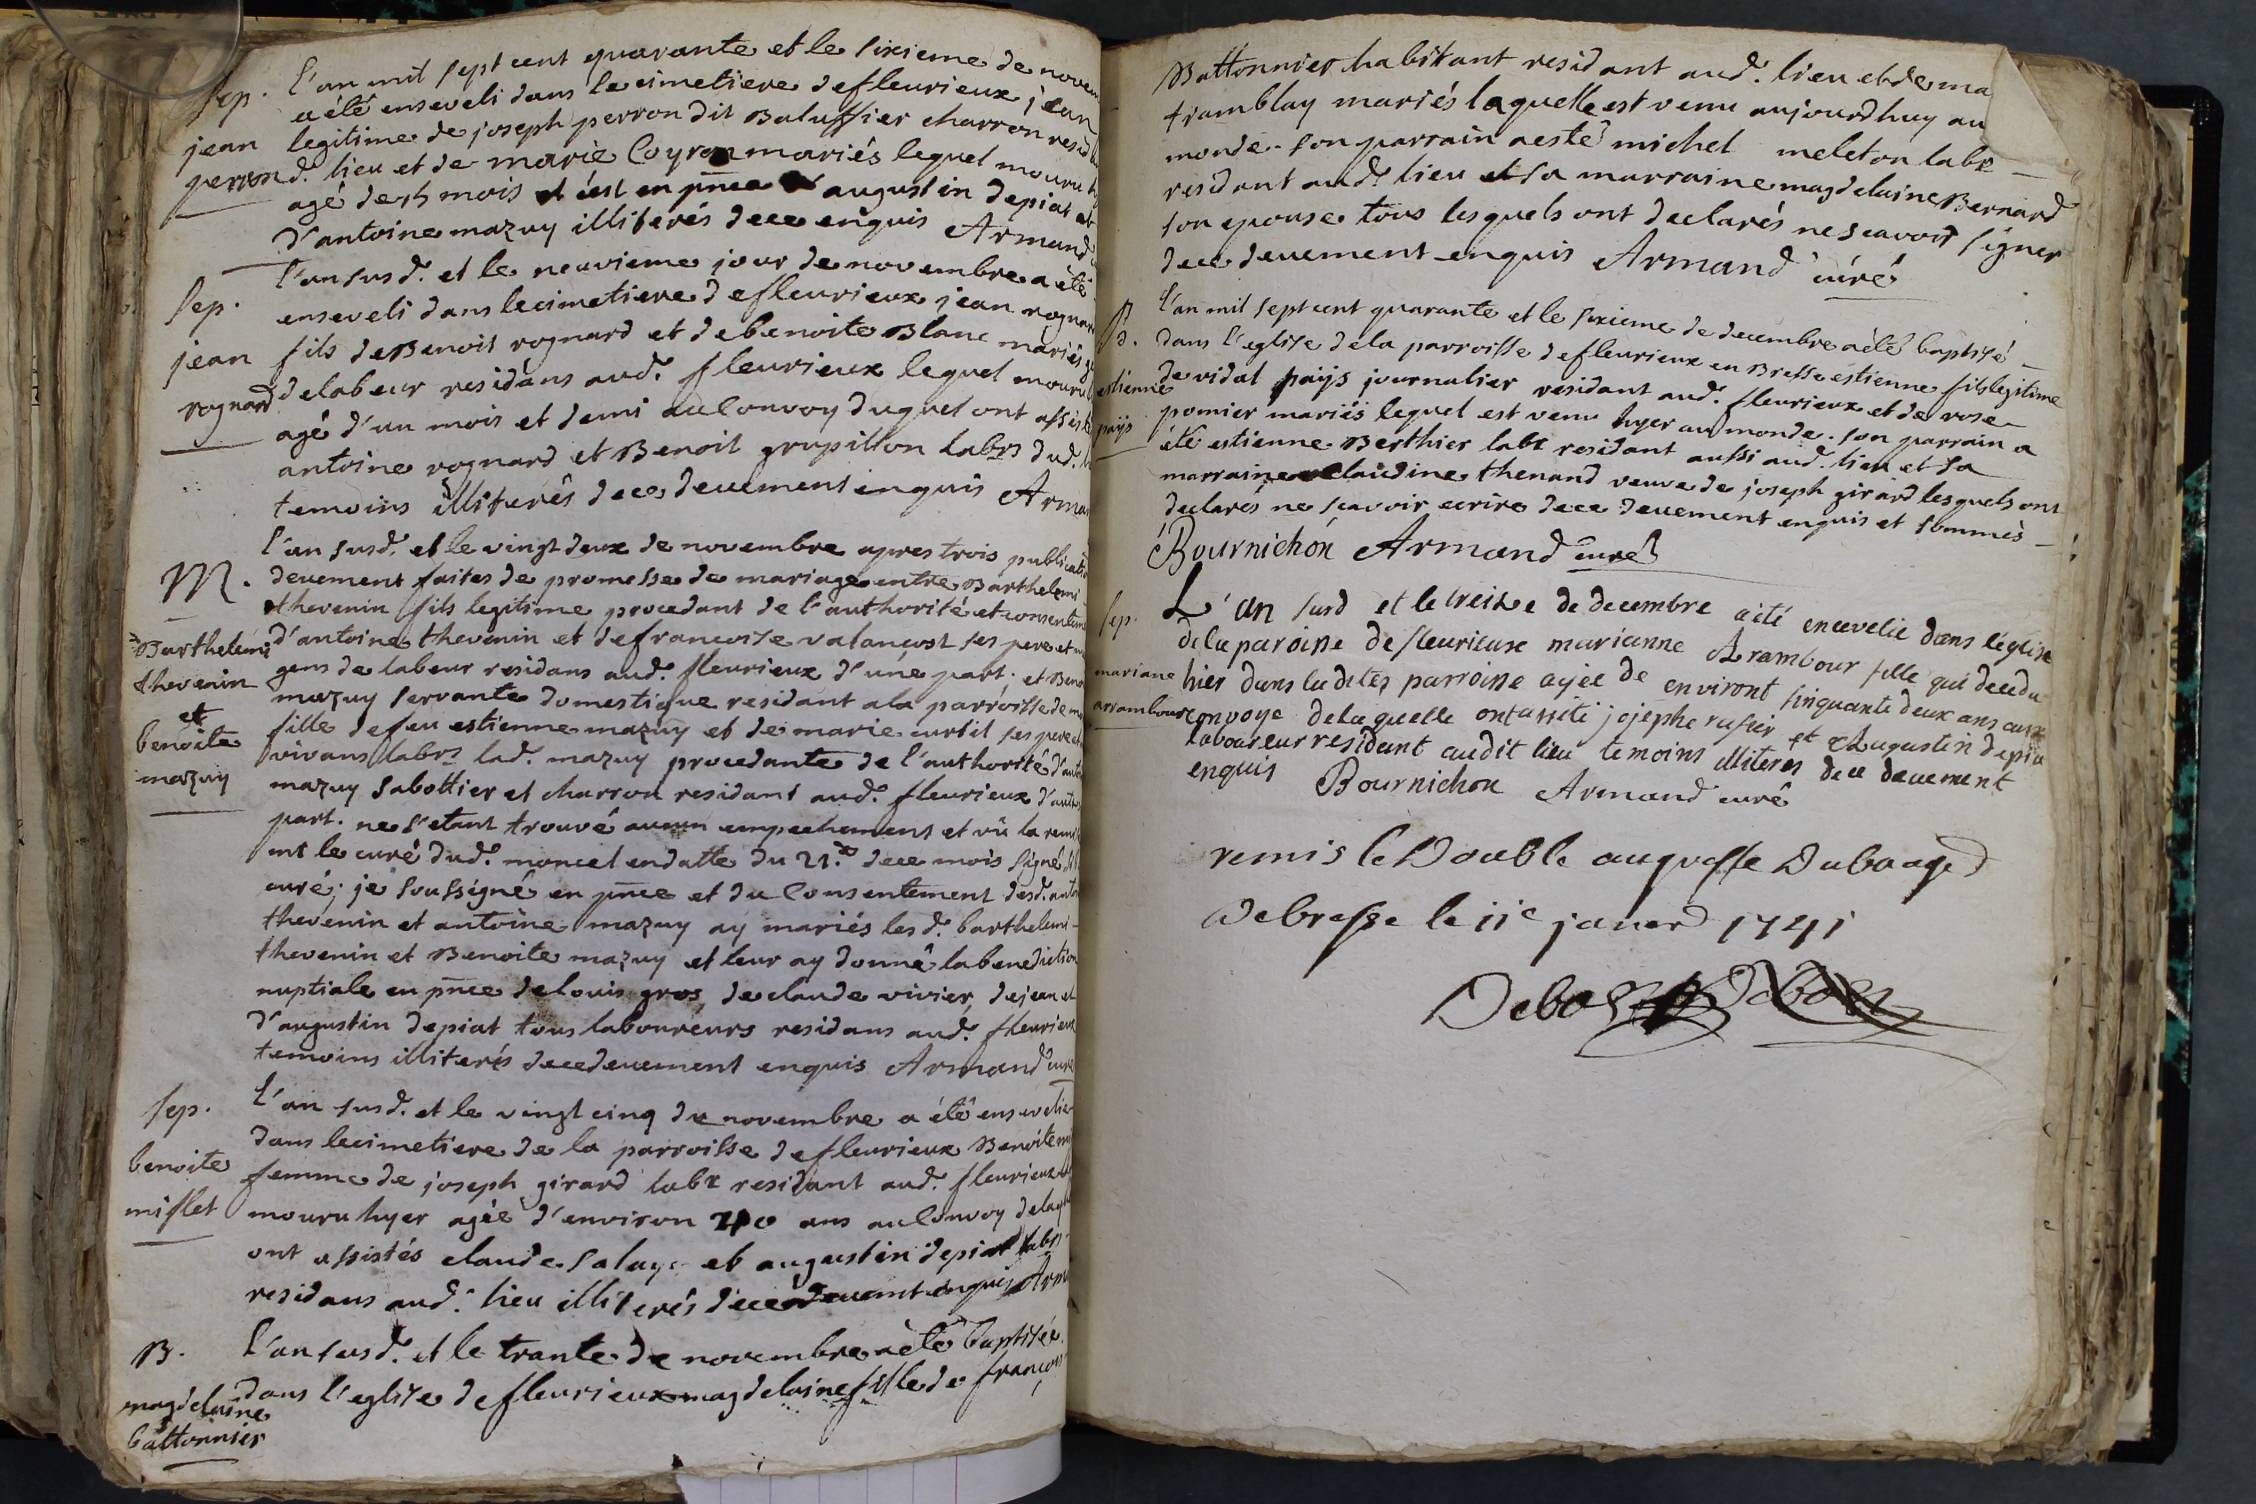 Sep.
jean
perron
l'an mil sept cent quarante et le sixieme de novem
a été enseveli dans le cimetiere de fleurieux jean
legitime de joseph perron dit Baluffier charron resid
aud. lieu et de marie Coyron mariés lequel mouru hy
agé de 15 mois et c'est en pnce augustin depiat et
d'antoine mazuy illiterés de ce enquis Armand
Sep.
jean
rognard
l'an susd. et le neuvieme jour de novembre a été
enseveli dans le cimetiere de fleurieux jean rognar
fils de Benoit rognard et de benoite Blanc mariés g
de labeur residans aud. fleurieux lequel mouru
agé d'un mois et demi au Convoy duquel ont assist
antoine rognard et Benoit grapillon labrs dud. l
temoins illiterés de ce deuement enquis Arman
M.
Barthelemi
thevenin
et
benoite
mazuy
l'an susd. et le vingt deux de novembre apres trois publicati
deuement faites de promesse de mariage entre Barthelemi
thevenin fils legitime procedant de l'authorité et consentem
d'antoine thevenin et de francoise valancost ses pere et m
gens de labeur residans aud. fleurieux d'une part. et Beno
mazuy servante domestique residant a la parroisse de m
fille de feu estienne mazuy et de marie curtil ses pere et
vivans labrs lad. mazuy procedante de l'authorité d'anto
mazuy sabottier et charron residant aud. fleurieux d'autre
part. ne s'etant trouvé aucun empechement et vû la remi
mt le curé dud. moncel en datte du 21.e de ce mois signé
curé; je soussigné en pnce et du Consentement desd. anto
thevenin et antoine mazuy ay mariés lesd. barthelemi
thevenin et Benoite mazuy et leur ay donné la benediction
nuptiale en pnce de louis gros, de claude vivier, de jean et
d'augustin depiat tous laboureurs residans aud. fleurieux
temoins illiterés de ce deuement enquis Armand curé
Sep.
benoite
miflet
l'an susd. et le vingt cinq de novembre a été ensevelie
dans le cimetiere de la parroisse de fleurieux Benoite mi
femme de joseph girard labr residant aud. fleurieux
mouru hyer agée d'environ 40 ans au Convoy de laq
ont assistés claude Salaye et augustin depiat labrs
residans aud. lieu illiterés de ce deuement enquis Arm
B.
magdelaine
battonnier
l'an susd. et le trante de novembre a été baptisée
dans l'eglise de fleurieux magdelaine fille de françois
Battonnier habitant residant aud. lieu et de ma
tramblay mariés laquelle est venu aujourdhuy au
monde. son parrain a esté michel meleton labr
residant aud. lieu et sa marraine magdelaine Bernard
son epouse tous lesquels ont declarés ne scavoir signer
de ce deuement enquis Armand curé
B.
estienne
païs
l'an mil sept cent quarante et le sixieme de decembre a été baptisé
dans l'eglise de la parroisse de fleurieux en Bresse estienne fils legitime
de vidal païs journalier residant aud. fleurieux et de rose
pomier mariés lequel est venu hyer au monde. son parrain a
été estienne Berthier labr residant aussi aud. lieu et sa
marraine claudine thenand veuve de joseph girard lesquels ont
declarés ne scavoir ecrire de ce deuement enquis et sommés
Bournichon Armand curé
Sep.
mariane
arrambour
L'an susd et le treize de decembre a été encevelie dans l'eglise
de la paroisse de fleurieux marianne Arambour fille qui deceda
hier dans la ditte parroisse agée de environt sinquante deux ans au
convoye de laquelle ont assité josephe rufier et Augustin depia
laboureur residant audit lieu temoins illiteres de ce deuement
enquis Bournichon Armand curé
remis le Double au greffe Du baage
De bresse le 11e janer 1741